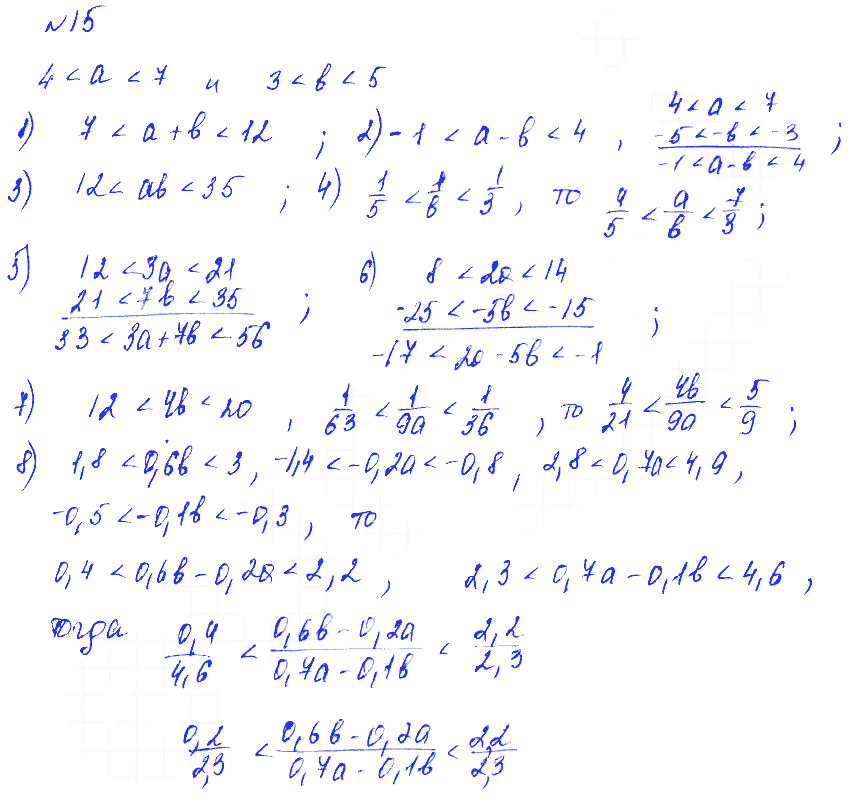 №15
4 < a < 7 и 3 < b < 5
1) 7 < a + b < 12 ; 2) -1 < a - b < 4 ,
4 < a < 7
-5 < -b < -3
-1 < a - b < 4 ;
3) 12 < ab < 35 ; 4) 1/5 < 1/b < 1/3 , то 4/5 < a/b < 7/3 ;
5) 12 < 3a < 21
21 < 7b < 35
33 < 3a + 7b < 56 ;
6) 8 < 2a < 14
-25 < -5b < -15
-17 < 2a - 5b < -1 ;
7) 12 < 4b < 20 , 1/63 < 1/9a < 1/36 , то 4/21 < 4b/9a < 5/9 ;
8) 1,8 < 0,6b < 3 , -1,4 < -0,2a < -0,8 , 2,8 < 0,7a < 4,9 ,
-0,5 < -0,1b < -0,3 , то
0,4 < 0,6b - 0,2a < 2,2 , 2,3 < 0,7a - 0,1b < 4,6 ,
тогда 0,4/4,6 < (0,6b - 0,2a)/(0,7a - 0,1b) < 2,2/2,3
0,2/2,3 < (0,6b - 0,2a)/(0,7a - 0,1b) < 2,2/2,3